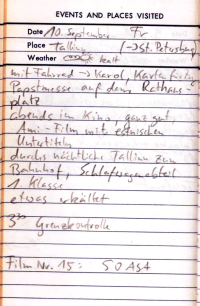 EVENTS AND PLACES VISITED
Date 10. September Fr
Place Tallinn (→ St. Petersburg)
Weather kalt
mit Fahrrad → Karol,
Papstmesse auf dem Rathaus-
platz
abends im Kino, ganz gut,
Ami-Film mit estnischen
Untertiteln
durchs nächtliche Tallinn zum
Bahnhof, Schlafwagenabteil
1. Klasse
etwas erkältet
3³⁰ Grenzkontrolle
Film Nr. 15: 50 ASA